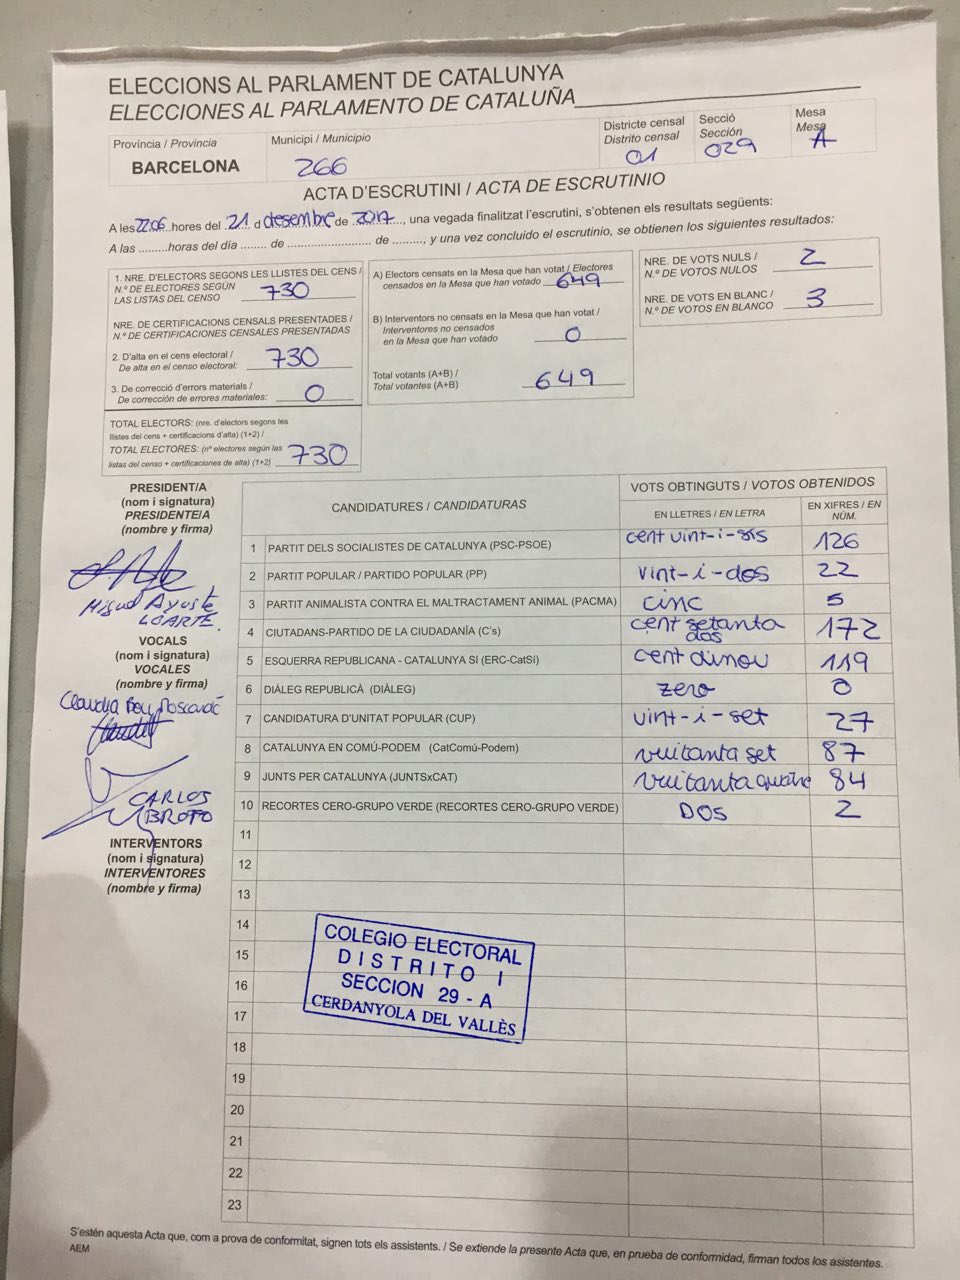 ELECCIONS AL PARLAMENT DE CATALUNYA
ELECCIONES AL PARLAMENTO DE CATALUÑA
Província / Provincia
BARCELONA
Municipi / Municipio
266
Districte censal
Distrito censal
01
Secció
Sección
029
Mesa
Mesa
A
ACTA D'ESCRUTINI / ACTA DE ESCRUTINIO
A les 22:06 hores del 21 d desembre de 2017, una vegada finalitzat l'escrutini, s'obtenen els resultats següents:
A las .........horas del día ........ de ........................ de ........, y una vez concluido el escrutinio, se obtienen los siguientes resultados:
1. NRE. D'ELECTORS SEGONS LES LLISTES DEL CENS /
N.º DE ELECTORES SEGÚN
LAS LISTAS DEL CENSO 730
NRE. DE CERTIFICACIONS CENSALS PRESENTADES /
N.º DE CERTIFICACIONES CENSALES PRESENTADAS
2. D'alta en el cens electoral /
De alta en el censo electoral: 730
3. De correcció d'errors materials /
De corrección de errores materiales: 0
TOTAL ELECTORS: (nre. d'electors segons les
llistes del cens + certificacions d'alta) (1+2) /
TOTAL ELECTORES: (nº electores según las
listas del censo + certificaciones de alta) (1+2) 730
A) Electors censats en la Mesa que han votat / Electores
censados en la Mesa que han votado 649
B) Interventors no censats en la Mesa que han votat /
Interventores no censados
en la Mesa que han votado 0
Total votants (A+B) /
Total votantes (A+B) 649
NRE. DE VOTS NULS /
N.º DE VOTOS NULOS 2
NRE. DE VOTS EN BLANC /
N.º DE VOTOS EN BLANCO 3
PRESIDENT/A
(nom i signatura)
PRESIDENTE/A
(nombre y firma)
Miguel Ayuste
LOARTE
VOCALS
(nom i signatura)
VOCALES
(nombre y firma)
Claudia
CARLOS
BROTO
INTERVENTORS
(nom i signatura)
INTERVENTORES
(nombre y firma)
CANDIDATURES / CANDIDATURAS
VOTS OBTINGUTS / VOTOS OBTENIDOS
EN LLETRES / EN LETRA
EN XIFRES / EN
NÚM.
1 PARTIT DELS SOCIALISTES DE CATALUNYA (PSC-PSOE) cent vint-i-sis 126
2 PARTIT POPULAR / PARTIDO POPULAR (PP) vint-i-dos 22
3 PARTIT ANIMALISTA CONTRA EL MALTRACTAMENT ANIMAL (PACMA) cinc 5
4 CIUTADANS-PARTIDO DE LA CIUDADANÍA (C's) cent setanta dos 172
5 ESQUERRA REPUBLICANA - CATALUNYA SI (ERC-CatSí) cent dinou 119
6 DIÀLEG REPUBLICÀ (DIÀLEG) zero 0
7 CANDIDATURA D'UNITAT POPULAR (CUP) vint-i-set 27
8 CATALUNYA EN COMÚ-PODEM (CatComú-Podem) vuitanta set 87
9 JUNTS PER CATALUNYA (JUNTSxCAT) vuitanta quatre 84
10 RECORTES CERO-GRUPO VERDE (RECORTES CERO-GRUPO VERDE) DOS 2
11
12
13
14
15
16
17
18
19
20
21
22
23
COLEGIO ELECTORAL
DISTRITO I
SECCION 29 - A
CERDANYOLA DEL VALLÈS
S'estén aquesta Acta que, com a prova de conformitat, signen tots els assistents. / Se extiende la presente Acta que, en prueba de conformidad, firman todos los asistentes.
AEM